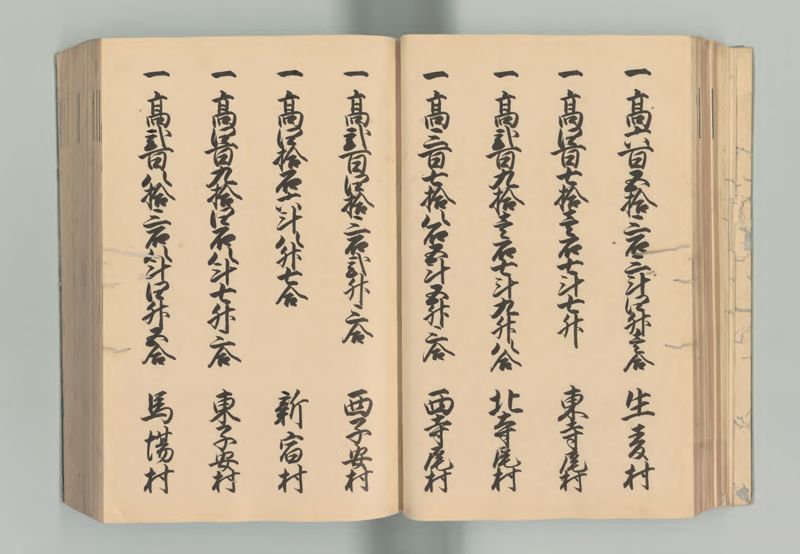 一 高六百五拾三石三斗四升壱合 生麦村
一 高四百七拾壱石七斗七升 東寺尾村
一 高弐百九拾壱石七斗九升八合 北寺尾村
一 高三百七拾八石五斗五升三合 西寺尾村
一 高弐百四拾三石弐升三合 西子安村
一 高四拾石六斗八升七合 新宿村
一 高四百九拾四石八斗七升三合 東子安村
一 高弐百八拾三石八斗四升五合 馬場村